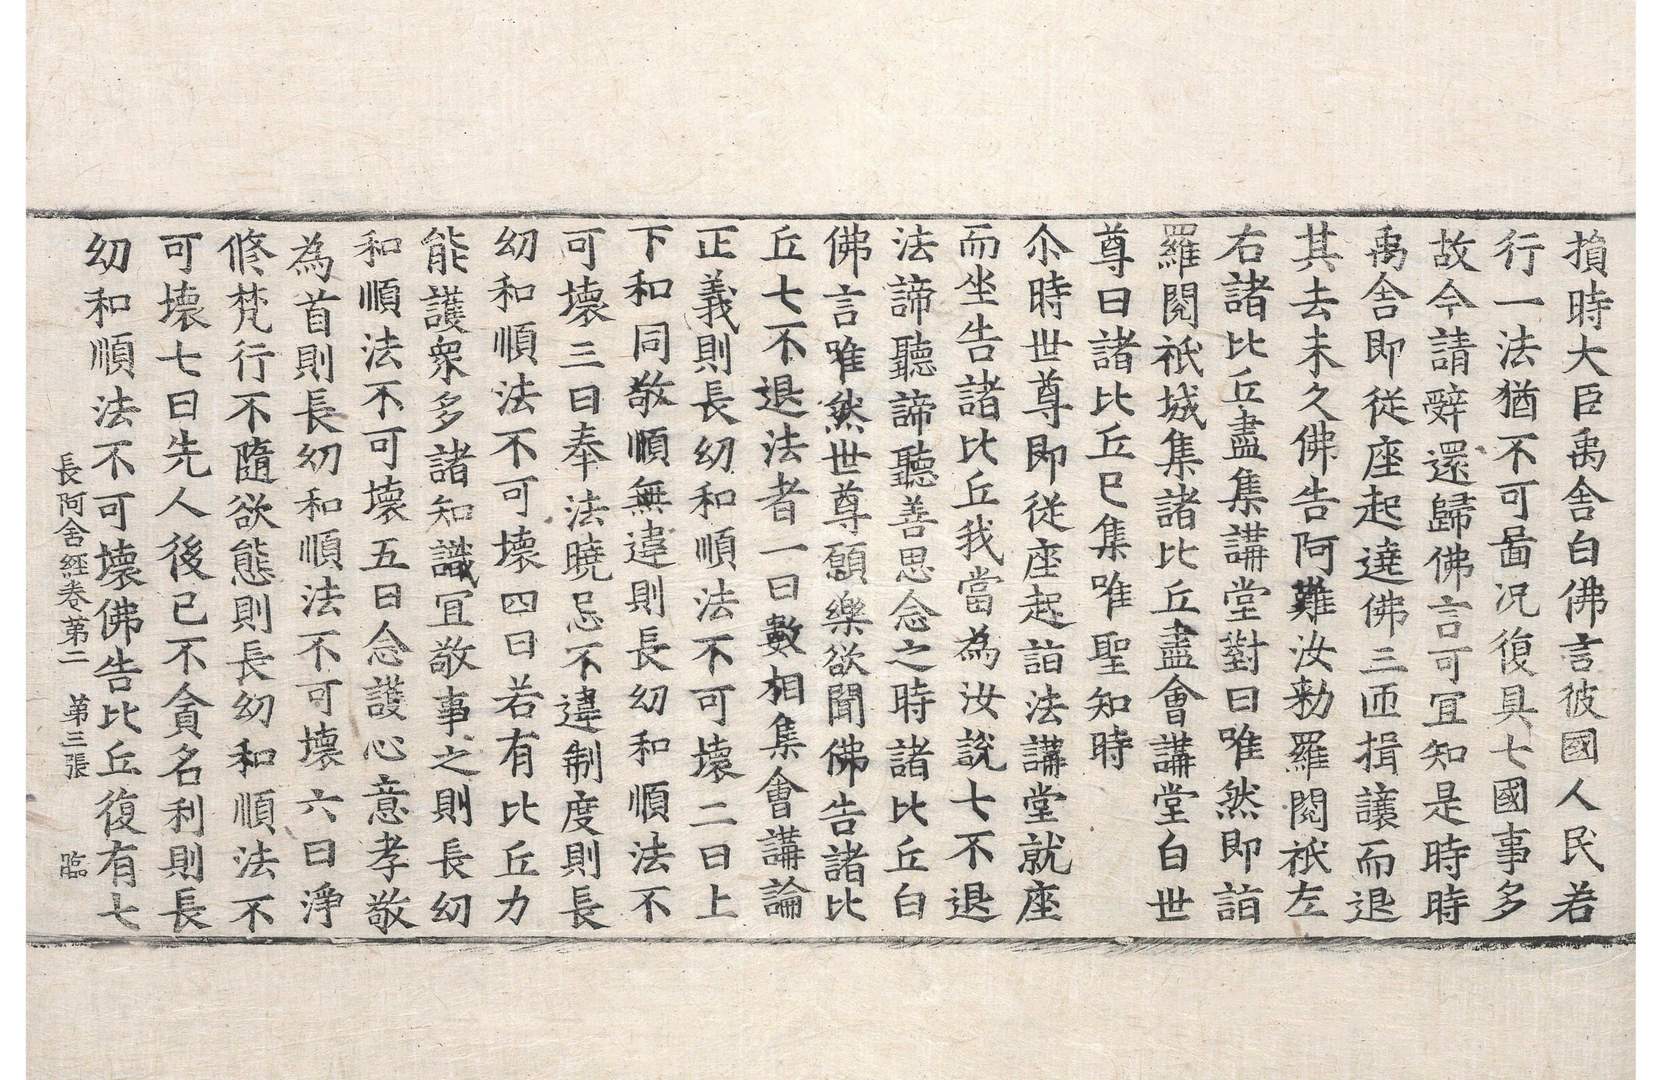 損時大臣禹舍白佛言彼國人民若
行一法猶不可啚况復具七國事多
故今請辤還歸佛言可冝知是時時
禹舍即從座起遶佛三匝揖讓而退
其去未久佛告阿難汝勑羅閱祇左
右諸比丘盡集講堂對曰唯然即詣
羅閱祇城集諸比丘盡會講堂白世
尊曰諸比丘已集唯聖知時
尒時世尊即從座起詣法講堂就座
而坐告諸比丘我當為汝說七不退
法諦聽諦聽善思念之時諸比丘白
佛言唯然世尊願樂欲聞佛告諸比
丘七不退法者一曰數相集會講論
正義則長幼和順法不可壞二曰上
下和同敬順無違則長幼和順法不
可壞三曰奉法曉忌不違制度則長
幼和順法不可壞四曰若有比丘力
能護衆多諸知識冝敬事之則長幼
和順法不可壞五曰念護心意孝敬
為首則長幼和順法不可壞六曰淨
修梵行不隨欲態則長幼和順法不
可壞七曰先人後己不貪名利則長
幼和順法不可壞佛告比丘復有七
長阿含經卷第二 第三張 臨